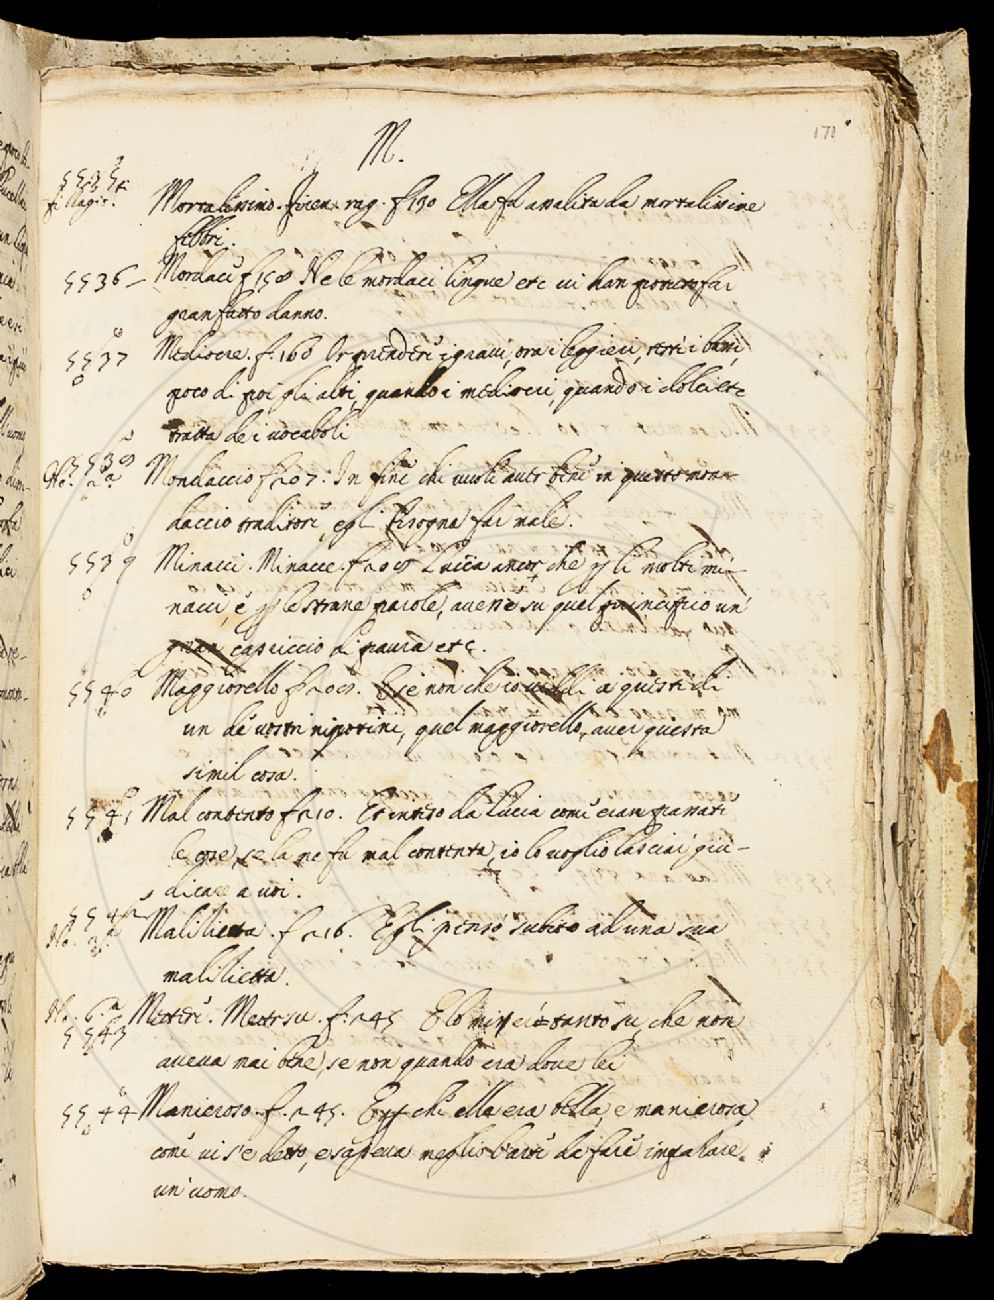 171
M.
5535
Mortalissimo. Firen. rag. f. 130 Ella fu assalita da mortalissime
febbri.
5536 Mordaci f. 158 Ne le mordaci lingue etc vi han potuto far
gran fatto danno.
5537 Mediocre. f. 160 Or prendere i gravi, ora i leggieri, i bassi,
poco di poi gli alti, quando i mediocri, quando i dolci etc
tratta de i vocaboli
5538 Mondaccio f. 207. In fine chi vuole aver bene in questo mon-
daccio traditore, egli bisogna far male.
5539 Minacci. Minacce. f. 209 Lucia ancor che p. li molti mi-
nacci, e p. le strane parole, avesse su quel principio un
gran capriccio di paura etc.
5540 Maggiorello f. 209. E se non che io viddi a questi dì
un de vostri nipotini, quel maggiorello, aver questa
simil cosa.
5541 Mal contento f. 210. Et inteso da Lucia come eran passate
le cose, se la ne fu mal contenta, io lo voglio lasciar giu-
dicare a voi.
5542
No. 3ª Malilietta. f. 216. Egli pensò subito ad una sua
malilietta.
No. 6ª Mettere. Mettersu. f. 245 E lo tanto su, che non
5543
aveva mai bene, se non quando era dove lei
5544 Manieroso. f. 245. ella era bella, e manierosa
come vi s'è detto, e sapeva meglio l'arte di fare impazzare
un'uomo.